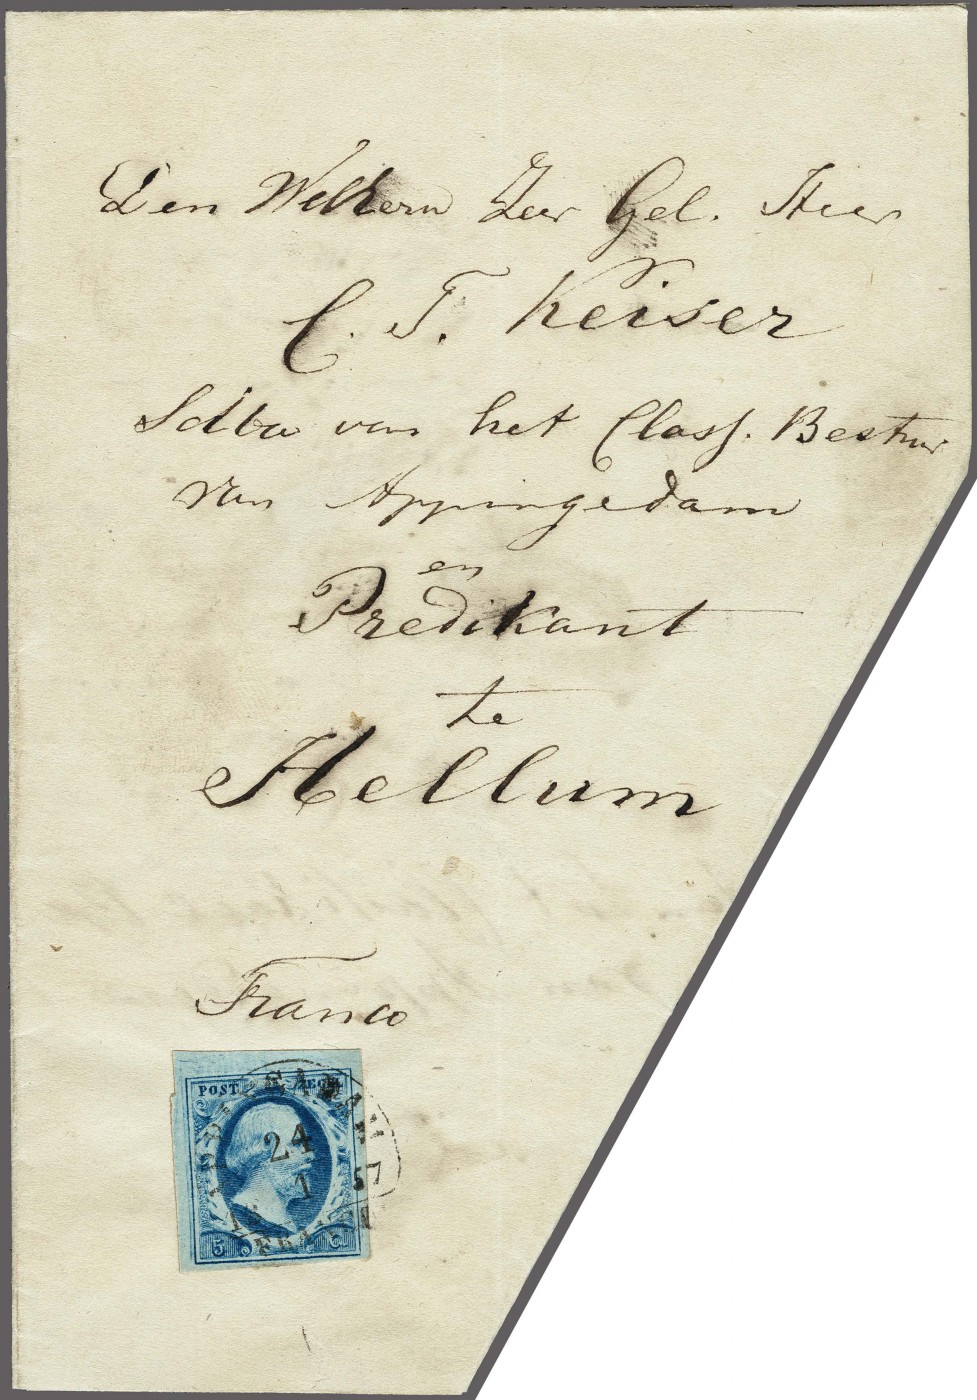 Den WelEerw Zeer Gel. Heer
C. F. Keiser
Scriba van het Class. Bestuur
van Appingedam
en
Predikant
te
Hellum
Franco
POST ZEGEL
APPINGEDAM
24
1 57
18
FRANCO
5 C